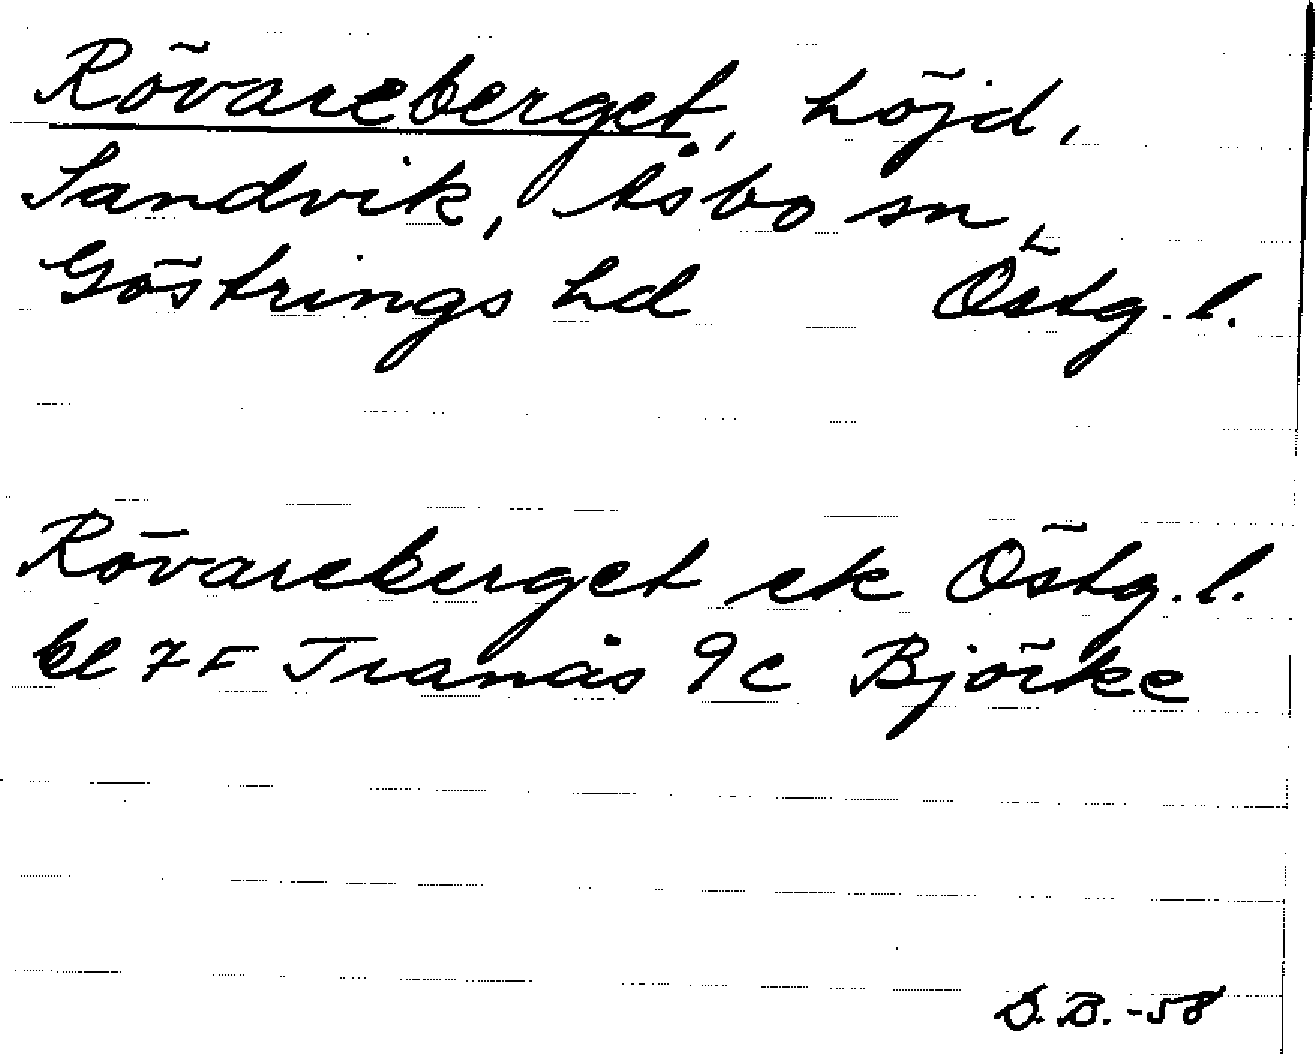 Rövareberget, höjd,
Sandvik, Åsbo sn,
Göstrings hd Östg. l.
Rövareberget ek Östg. l.
bl 7F Tranås 9c Björke
D.B. -58